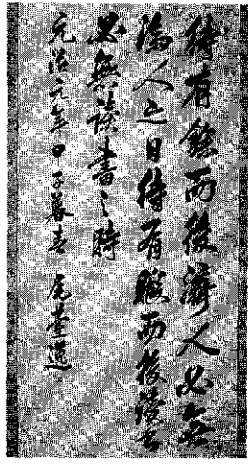 待有餘而後濟人必無
濟人之日待有暇而後讀書
必無讀書之時
元治元年甲子暮春 尾臺逸